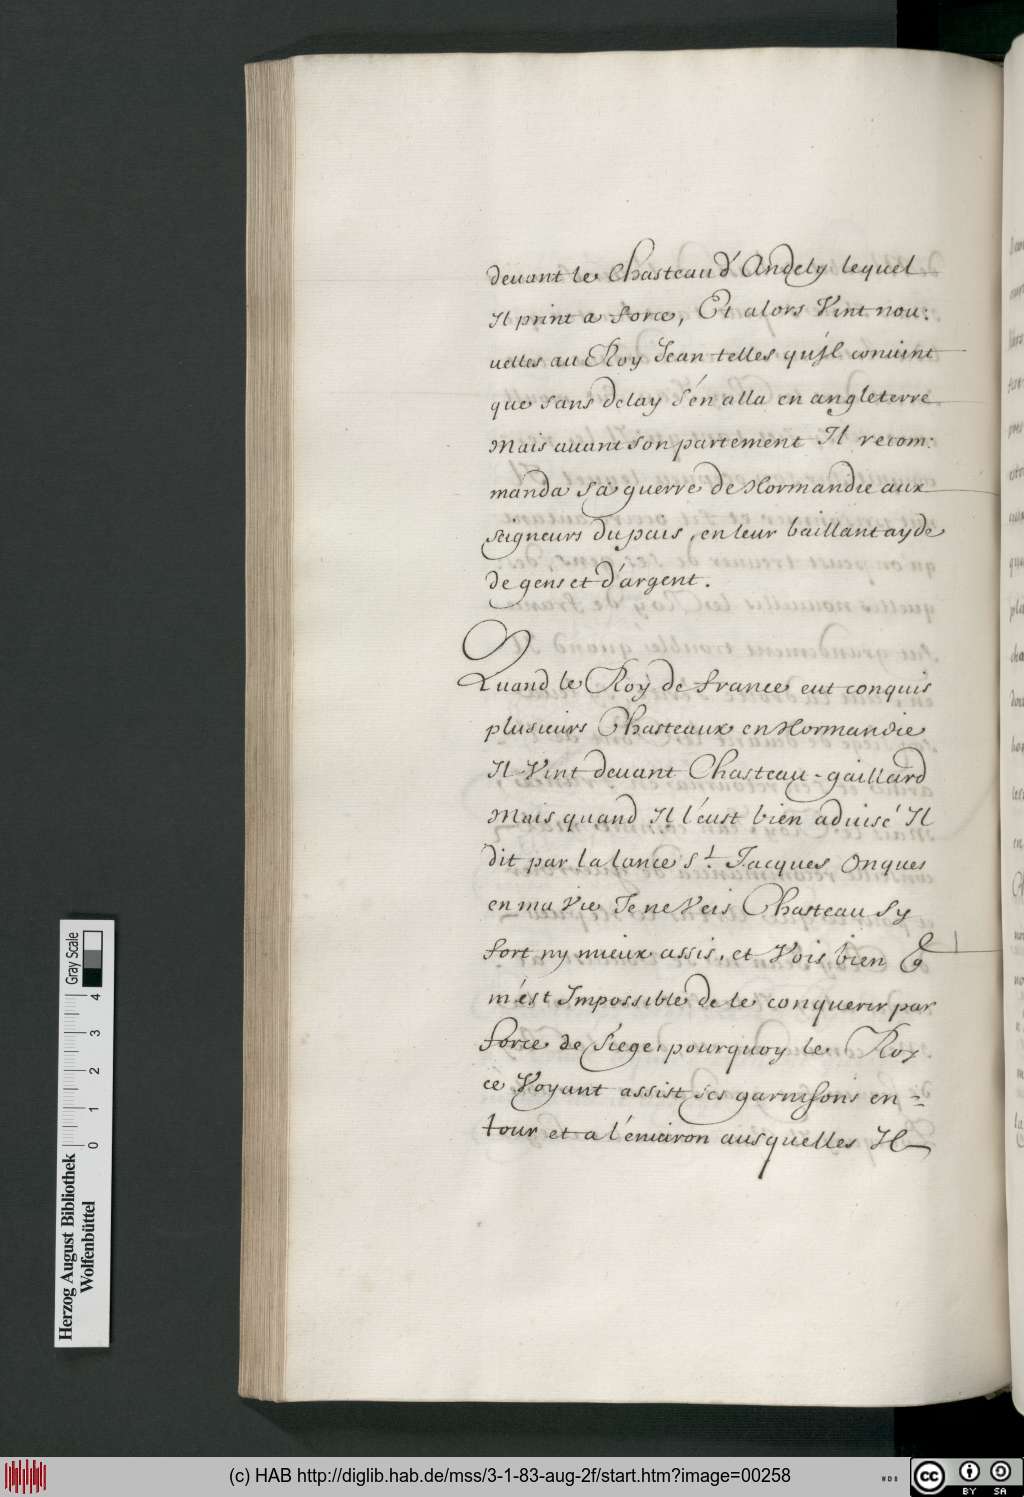 devant le Chasteau d'Andely lequel
Il print a force, Et alors Vint nou:
uelles au Roy Jean telles qu'jl conuint
que sans delay s'en alla en angleterre
Mais auant son partement Il recom:
manda sa guerre de Normandie aux
seigneurs du pais, en leur baillant ayde
de gens et d'argent.
Quand le Roy de france eut conquis
plusieurs Chasteaux en Normandie
Il Vint deuant Chasteau-gaillard
Mais quand Il l'eust bien aduisé Il
dit par la lance St. Jacques Onques
en ma Vie Je ne Veis Chasteau sy
fort ny mieux assis, et Vois bien
m'est Impossible de le conquerir par
force de siege, pourquoy le Roy
ce Voyant assist ses garnisons en-
tour et a l'enuiron ausquelles Il
Gray Scale
0 1 2 3 4
Herzog August Bibliothek
Wolfenbüttel
(c) HAB http://diglib.hab.de/mss/3-1-83-aug-2f/start.htm?image=00258
WDB
CC BY SA